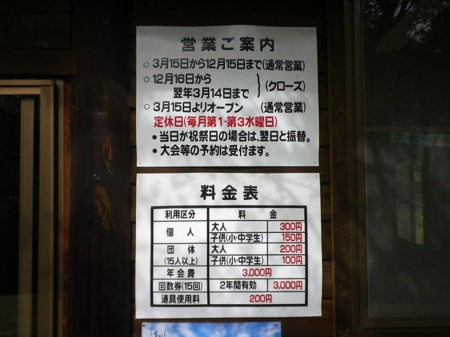 営業ご案内
○3月15日から12月15日まで(通常営業)
○12月16日から
翌年3月14日まで
(クローズ)
○3月15日よりオープン (通常営業)
定休日(毎月第1・第3水曜日)
・当日が祝祭日の場合は、翌日と振替。
・大会等の予約は受付ます。
料金表
利用区分 料金
個人 大人 300円
子供(小・中学生) 150円
団体 大人 200円
(15人以上) 子供(小・中学生) 100円
年会費 3,000円
回数券(15回) 2年間有効 3,000円
道具使用料 200円